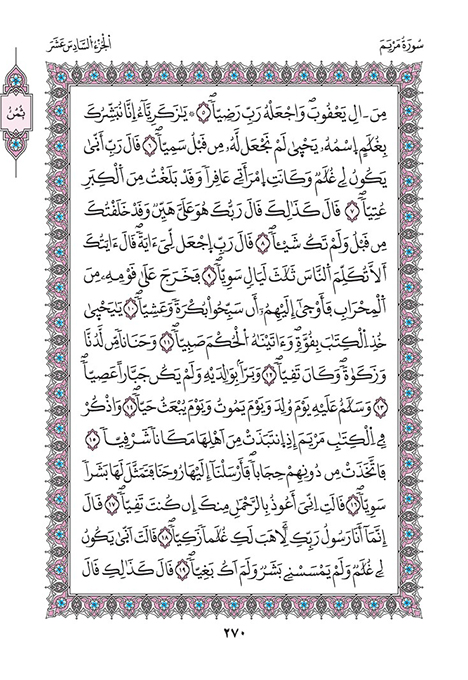 سُورَةُ مَرْيَمَ
اَلْجُزْءُ السَّادِسَ عَشَرَ
ثُمُنُ
مِنَ اٰلِ يَعْقُوبَۖ وَاجْعَلْهُ رَبِّ رَضِيّاٗۖ ٥ يَٰزَكَرِيَّآءُ إِنَّا نُبَشِّرُكَ
بِغُلَٰمٍ اِسْمُهُۥ يَحْيٰۭي لَمْ نَجْعَل لَّهُۥ مِن قَبْلُ سَمِيّاٗۖ ٦ قَالَ رَبِّ أَنّ۪يٰ
يَكُونُ لِے غُلَٰمٞ وَكَانَتِ اِمْرَأَتِے عَاقِراٗ وَقَدْ بَلَغْتُ مِنَ اَ۬لْكِبَرِ
عُتِيّاٗۖ ٧ قَالَ كَذَٰلِكَ قَالَ رَبُّكَ هُوَ عَلَيَّ هَيِّنٞۖ وَقَدْ خَلَقْتُكَ
مِن قَبْلُ وَلَمْ تَكُ شَيْـٔاٗۖ ٨ قَالَ رَبِّ اِ۪جْعَل لِّيَ ءَايَةٗۖ قَالَ ءَايَتُكَ
أَلَّا تُكَلِّمَ اَ۬لنَّاسَ ثَلَٰثَ لَيَالٖ سَوِيّاٗۖ ٩ فَخَرَجَ عَلَيٰ قَوْمِهِۦ مِنَ
اَ۬لْمِحْرَابِ فَأَوْح۪يٰ إِلَيْهِمُۥٓ أَن سَبِّحُواْ بُكْرَةٗ وَعَشِيّاٗۖ ١٠ يَٰيَحْي۪يٰ
خُذِ اِ۬لْكِتَٰبَ بِقُوَّةٖۖ وَءَاتَيْنَٰهُ اُ۬لْحُكْمَ صَبِيّاٗۖ ١١ وَحَنَاناٗ مِّن لَّدُنَّا
وَزَكَوٰةٗۖ وَكَانَ تَقِيّاٗۖ ١٢ وَبَرّاَۢ بِوَٰلِدَيْهِ وَلَمْ يَكُن جَبَّاراً عَصِيّاٗۖ
١٣ وَسَلَٰمٌ عَلَيْهِ يَوْمَ وُلِدَ وَيَوْمَ يَمُوتُ وَيَوْمَ يُبْعَثُ حَيّاٗۖ ١٤ وَاذْكُرْ
فِے اِ۬لْكِتَٰبِ مَرْيَمَ إِذِ اِ۪نتَبَذَتْ مِنَ اَهْلِهَا مَكَاناٗ شَرْقِيّاٗ ١٥
فَاتَّخَذَتْ مِن دُونِهِمْ حِجَاباٗۖ فَأَرْسَلْنَآ إِلَيْهَا رُوحَنَا فَتَمَثَّلَ لَهَا بَشَراٗ
سَوِيّاٗۖ ١٦ قَالَتِ اِنِّيَ أَعُوذُ بِالرَّحْمَٰنِ مِنكَ إِن كُنتَ تَقِيّاٗۖ ١٧ قَالَ
إِنَّمَآ أَنَا رَسُولُ رَبِّكِ لِأَهَبَ لَكِ غُلَٰماٗ زَكِيّاٗۖ ١٨ قَالَتَ اَنّ۪يٰ يَكُونُ
لِے غُلَٰمٞ وَلَمْ يَمْسَسْنِے بَشَرٞ وَلَمَ اَكُ بَغِيّاٗۖ ١٩ قَالَ كَذَٰلِكِ قَالَ
٢٧٠